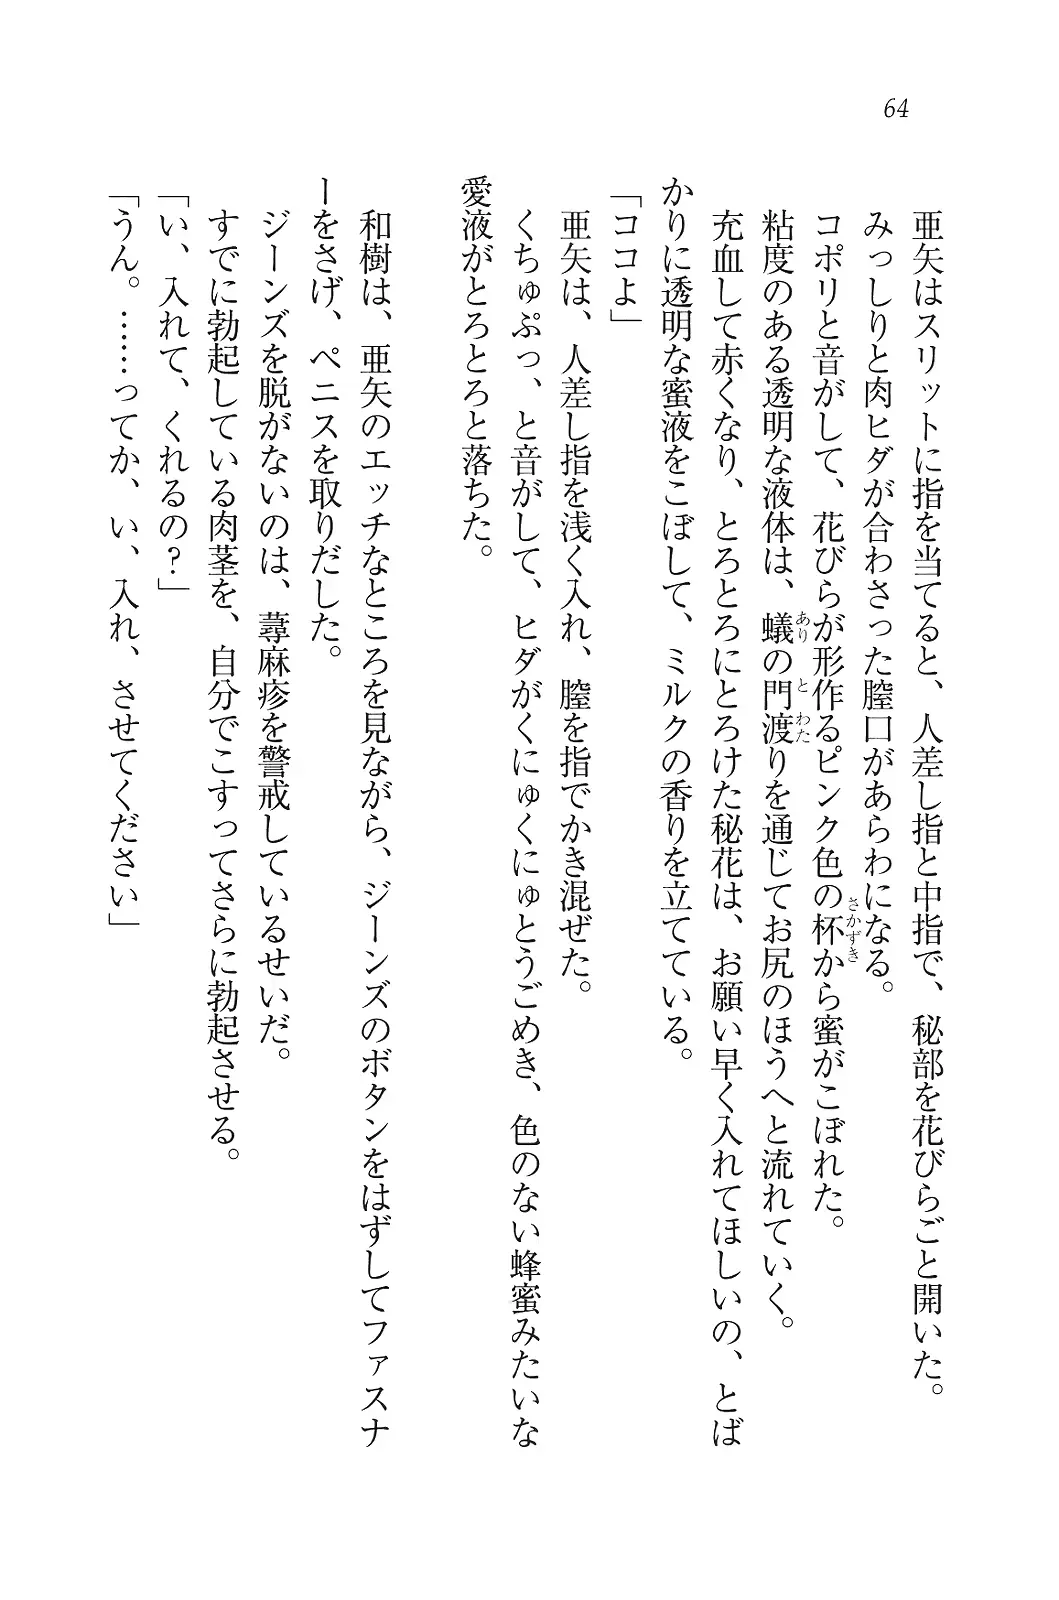 64
亜矢はスリットに指を当てると、人差し指と中指で、秘部を花びらごと開いた。
みっしりと肉ヒダが合わさった膣口があらわになる。
コポリと音がして、花びらが形作るピンク色の杯（さかずき）から蜜がこぼれた。
粘度のある透明な液体は、蟻（あり）の門（と）渡（わた）りを通じてお尻のほうへと流れていく。
充血して赤くなり、とろとろにとろけた秘花は、お願い早く入れてほしいの、とば
かりに透明な蜜液をこぼして、ミルクの香りを立てている。
「ココよ」
亜矢は、人差し指を浅く入れ、膣を指でかき混ぜた。
くちゅぷっ、と音がして、ヒダがくにゅくにゅとうごめき、色のない蜂蜜みたいな
愛液がとろとろと落ちた。
和樹は、亜矢のエッチなところを見ながら、ジーンズのボタンをはずしてファスナ
ーをさげ、ペニスを取りだした。
ジーンズを脱がないのは、蕁麻疹を警戒しているせいだ。
すでに勃起している肉茎を、自分でこすってさらに勃起させる。
「い、入れて、くれるの？」
「うん。……ってか、い、入れ、させてください」